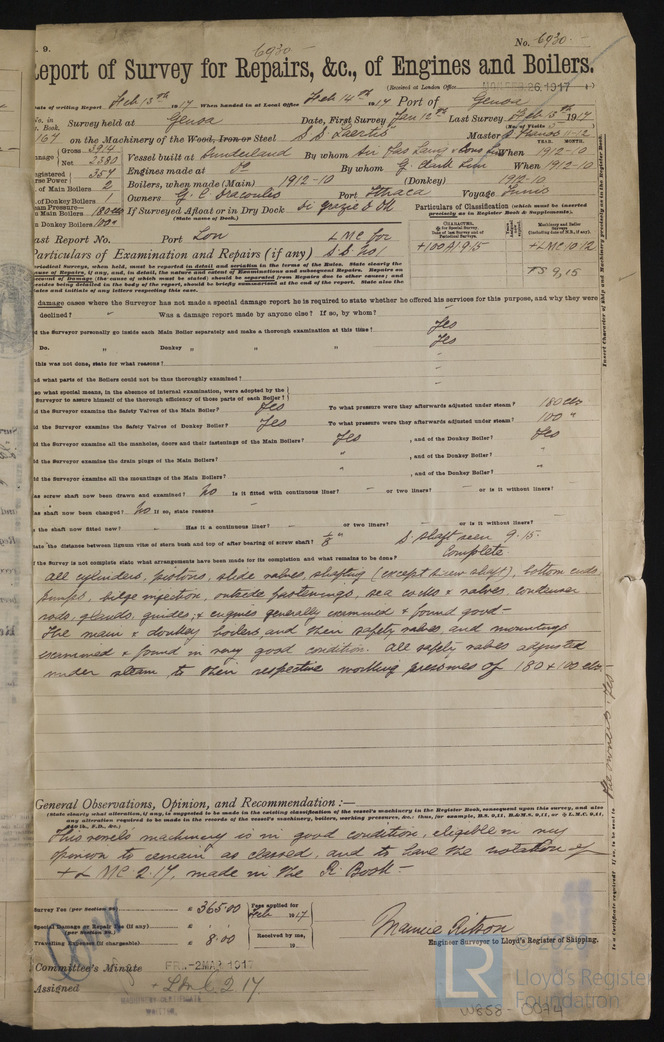 . 9.
6930
No. 6930.
Report of Survey for Repairs, &c., of Engines and Boilers.
(Received at London Office 26.1917)
Date of writing Report Feb 13th 1917 When handed in at Local Office Feb 14th 1917 Port of Genoa
No. in Survey held at Genoa Date, First Survey Jan 12th Last Survey Feb 13th 1917
Book. (No. of Visits 5)
167 on the Machinery of the Wood, Iron or Steel S.S. Laertis Master
Gross 3914 Vessel built at Sunderland By whom When 1912-10
Net 2380
Registered 357 Engines made at Do By whom G. Clark Lim When 1912-10
Horse Power
of Main Boilers 2 Boilers, when made (Main) 1912-10 (Donkey) 1912-10
of Donkey Boilers 1 Owners G. C Dracoulis Port Ithaca Voyage Tunis
Steam Pressure—
in Main Boilers 180 If Surveyed Afloat or in Dry Dock
in Donkey Boilers 100 (State name of Dock.)
Particulars of Classification (which must be inserted
precisely as in Register Book & Supplements).
Last Report No. Port Lon
LMC for
S.S. No 1
+100A1 9.15
+LMC 10.12
TS 9,15
Particulars of Examination and Repairs (if any)
damage cases where the Surveyor has not made a special damage report he is required to state whether he offered his services for this purpose, and why they were
declined? " Was a damage report made by anyone else? If so, by whom?
Did the Surveyor personally go inside each Main Boiler separately and make a thorough examination at this time? Yes
Do. " Donkey " " " Yes
If this was not done, state for what reasons?
And what parts of the Boilers could not be thus thoroughly examined?
Also what special means, in the absence of internal examination, were adopted by the
Surveyor to assure himself of the thorough efficiency of those parts of each Boiler?
Did the Surveyor examine the Safety Valves of the Main Boiler? Yes To what pressure were they afterwards adjusted under steam? 180 lbs
Did the Surveyor examine the Safety Valves of Donkey Boiler? Yes To what pressure were they afterwards adjusted under steam? 100 "
Did the Surveyor examine all the manholes, doors and their fastenings of the Main Boilers? Yes , and of the Donkey Boiler? Yes
Did the Surveyor examine the drain plugs of the Main Boilers? " , and of the Donkey Boiler? "
Did the Surveyor examine all the mountings of the Main Boilers? " , and of the Donkey Boiler? "
Has screw shaft now been drawn and examined? No Is it fitted with continuous liner? - or two liners? - or is it without liners? -
Has shaft now been changed? No If so, state reasons
Is the shaft now fitted new? Has it a continuous liner? or two liners? or is it without liners?
State the distance between lignum vitæ of stern bush and top of after bearing of screw shaft? 1/8" S. shaft seen 9.15.
If the Survey is not complete state what arrangements have been made for its completion and what remains to be done? Complete
All cylinders, pistons, slide valves, shafting (except screw shaft), bottom ends,
pumps, bilge injection, outside fastenings, sea cocks & valves, condenser
rods, glands, guides, & engines generally examined & found good—
The main & donkey boilers and their safety valves and mountings
examined & found in very good condition. All safety valves adjusted
under steam to their respective working pressures of 180 & 100 lbs.
General Observations, Opinion, and Recommendation :—
(State clearly what alteration, if any, is suggested to be made in the existing classification of the vessel's machinery in the Register Book, consequent upon this survey, and also
any alteration required to be made in the records of the vessel's machinery, boilers, working pressures, &c.: thus, for example, B.S. 9,11, B.&M.S. 9,11, or L.M.C. 9,11,
This vessel's machinery is in good condition, eligible in my
opinion to remain as classed, and to have the notation of
+ LMC 2.17 made in the R. Book—
Survey Fee (per Section 29) £ 365.00 Fees applied for
Feb 1917.
Special Damage or Repair Fee (if any) £
(per Section 28.)
Travelling Expenses (if chargeable) £ 8.00 Received by me,
19
Maurice Ritson
Engineer Surveyor to Lloyd's Register of Shipping.
Committee's Minute FRI. -2 MAR 1917
Assigned + LMC 2.17.
MACHINERY CERTIFICATE
WRITTEN.
LR
Lloyd's Register
Foundation
W858-0074